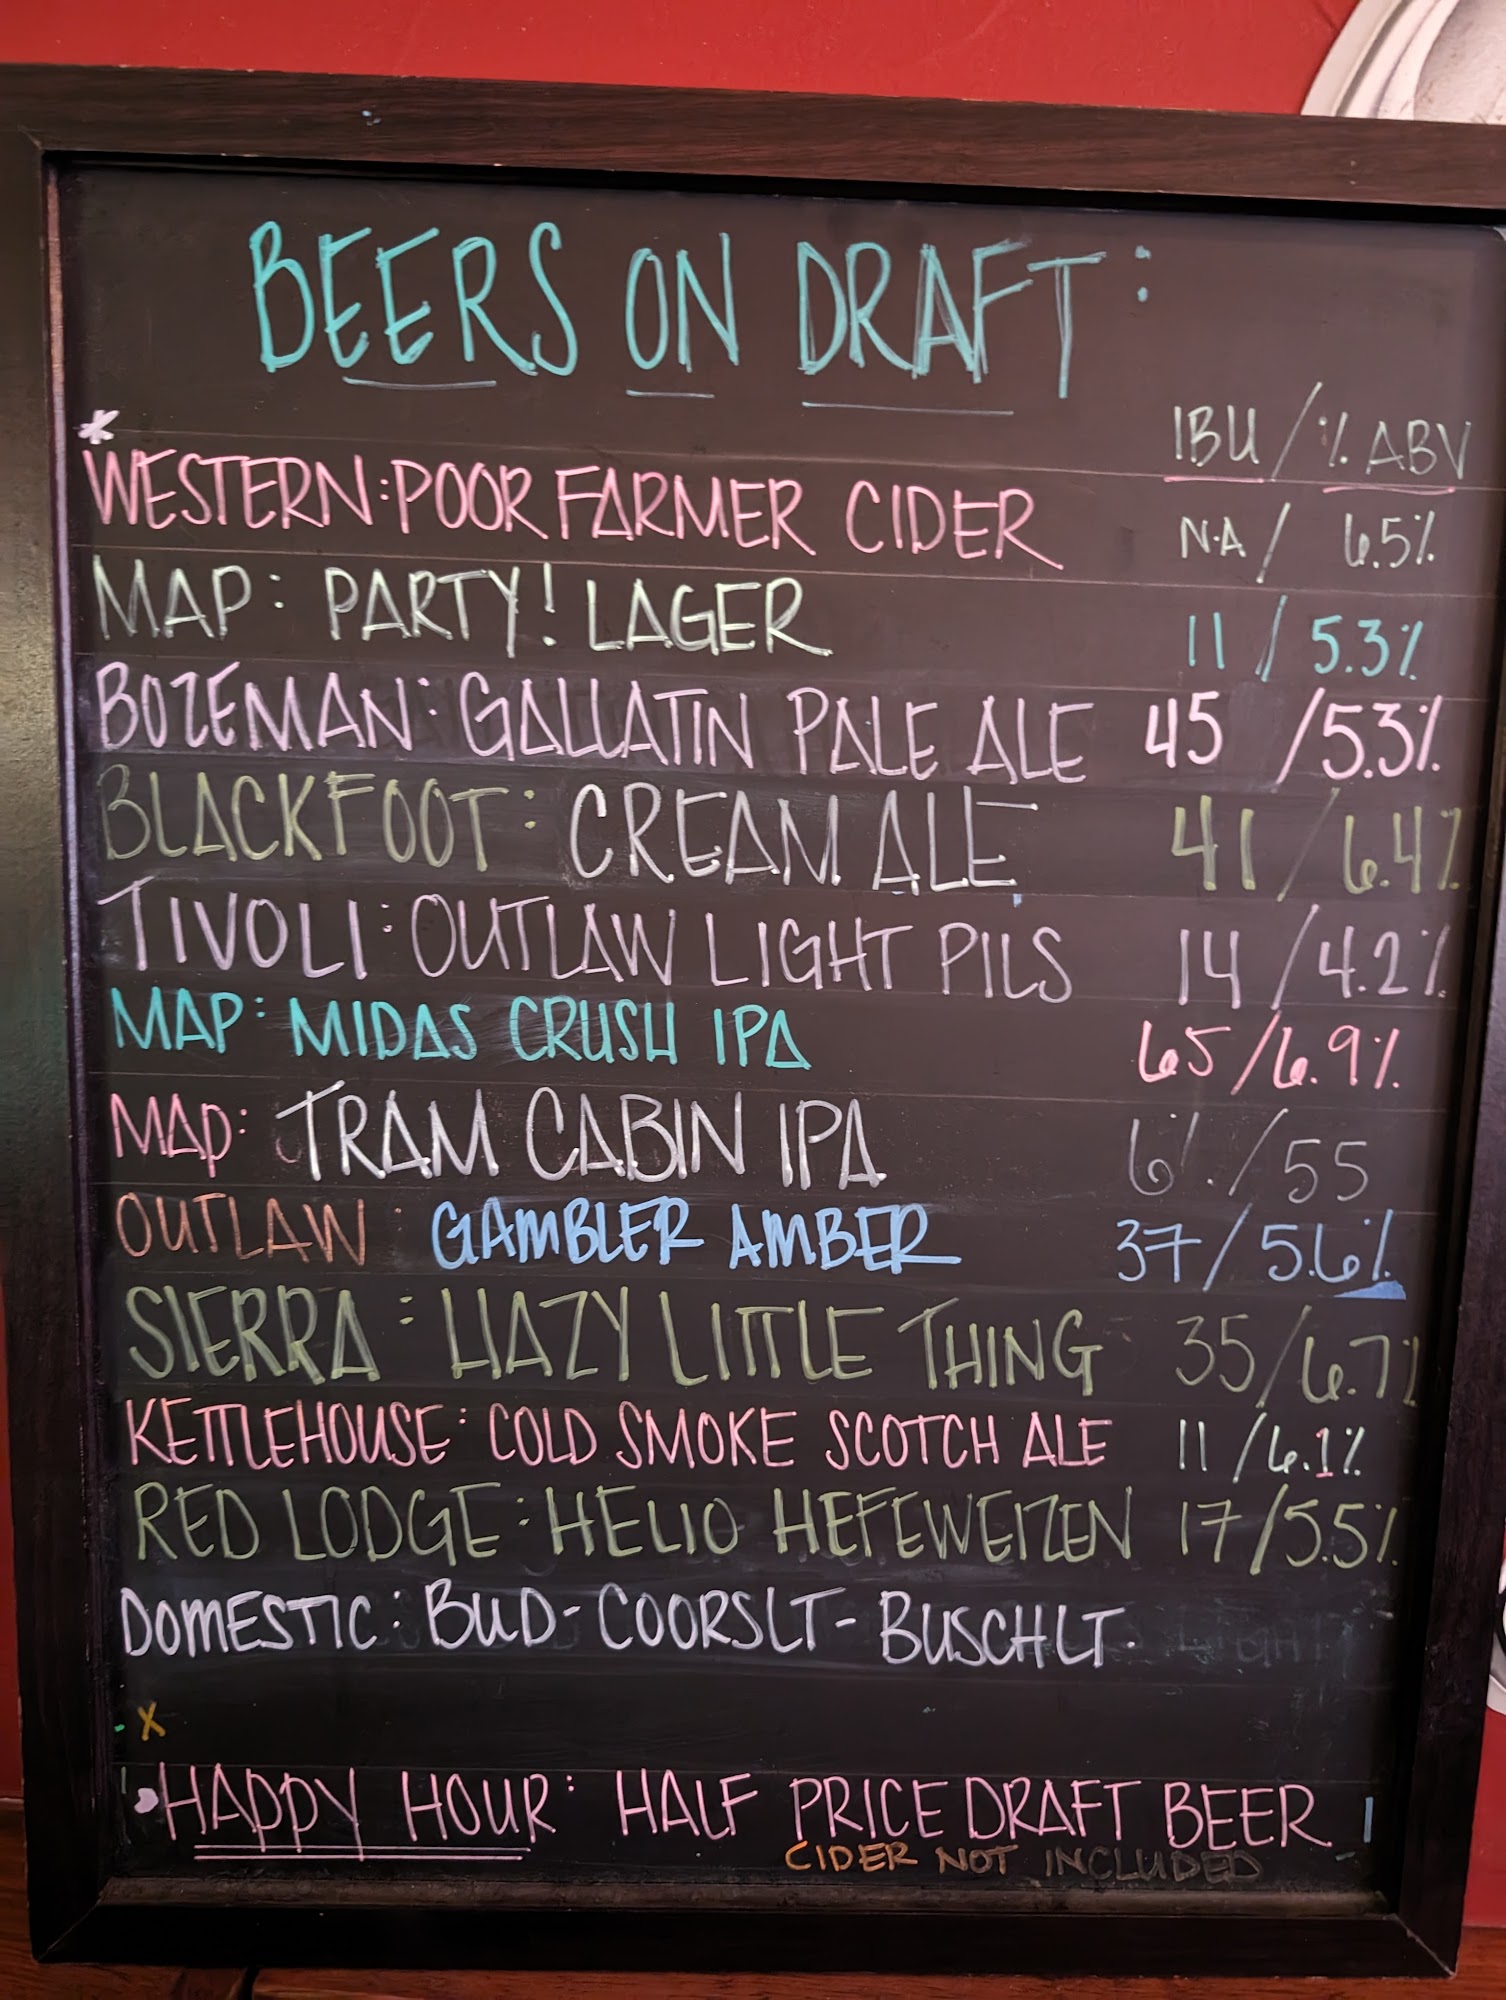 BEERS ON DRAFT:
IBU / % ABV
*
WESTERN: POOR FARMER CIDER N.A / 6.5%
MAP: PARTY! LAGER 11 / 5.3%
BOZEMAN: GALLATIN PALE ALE 45 / 5.3%
BLACKFOOT: CREAM ALE 41 / 6.4%
TIVOLI: OUTLAW LIGHT PILS 14 / 4.2%
MAP: MIDAS CRUSH IPA 65 / 6.9%
MAP: TRAM CABIN IPA 6% / 55
OUTLAW: GAMBLER AMBER 37 / 5.6%
SIERRA: HAZY LITTLE THING 35 / 6.7%
KETTLEHOUSE: COLD SMOKE SCOTCH ALE 11 / 6.1%
RED LODGE: HELIO HEFEWEIZEN 17 / 5.5%
DOMESTIC: BUD - COORSLT - BUSCHLT.
X
HAPPY HOUR: HALF PRICE DRAFT BEER
CIDER NOT INCLUDED